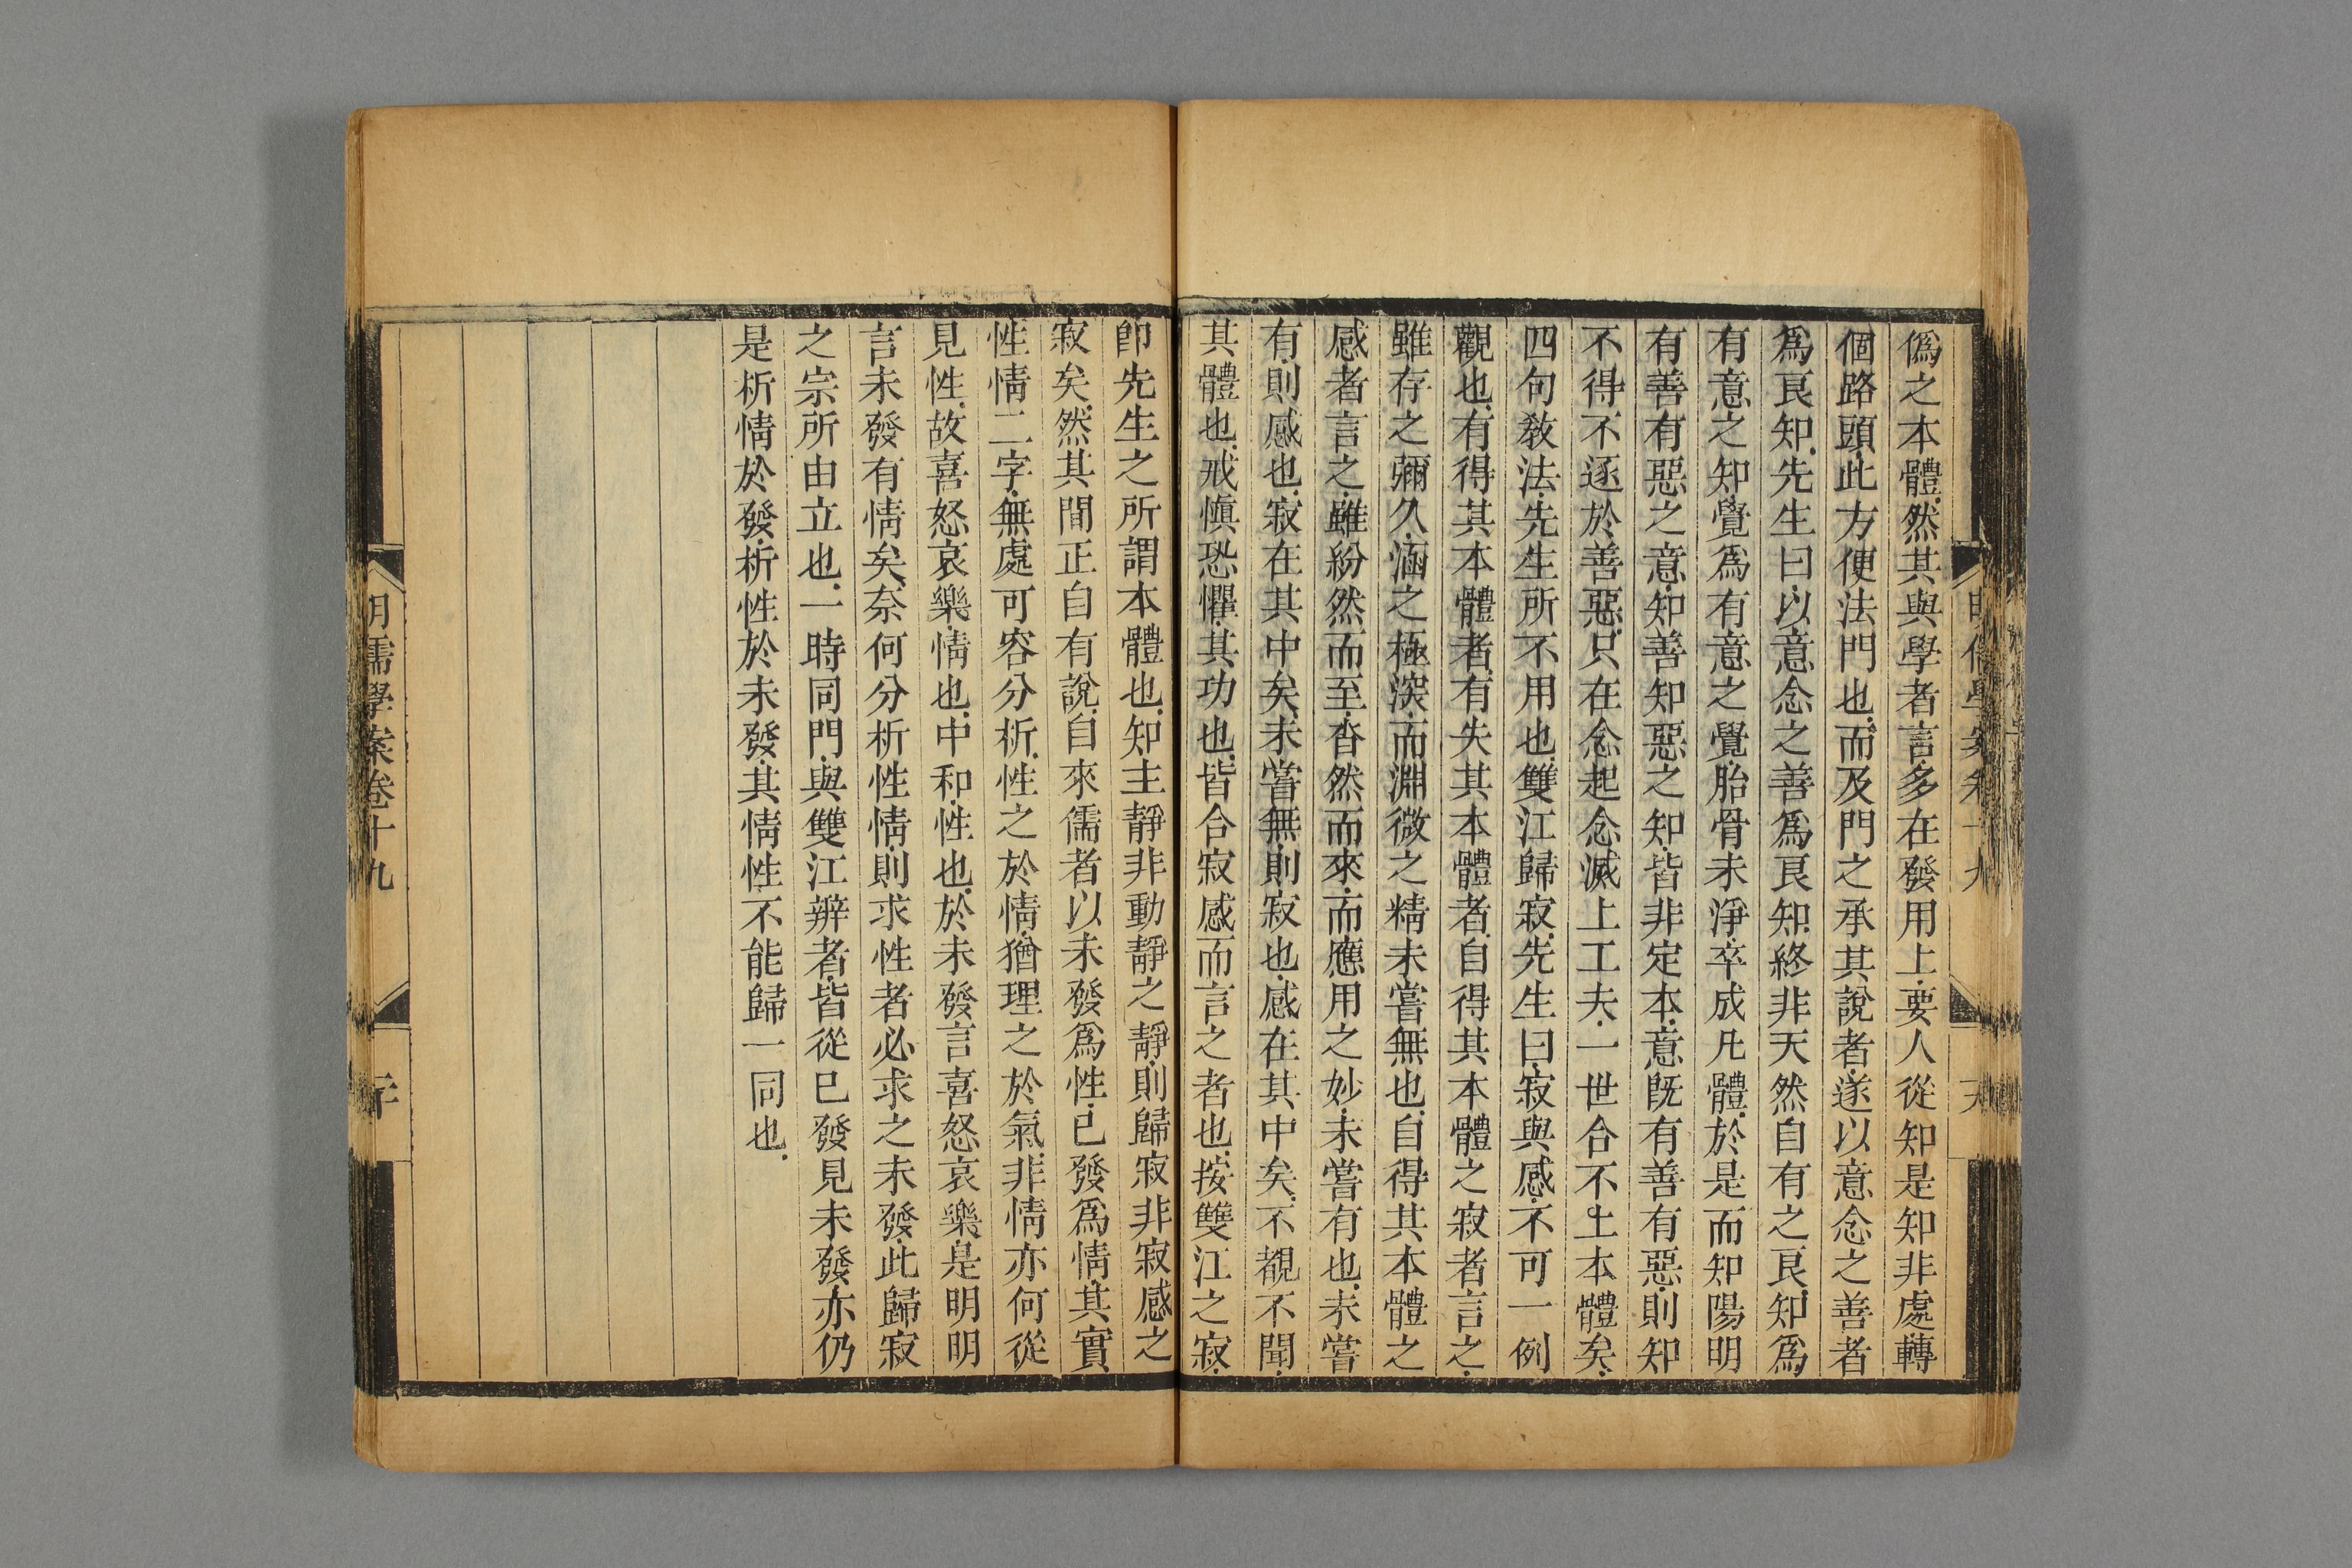 偽之本體.然其與學者言.多在發用上.要人從知是知非處轉
個路頭.此方便法門也.而及門之承其說者.遂以意念之善者
爲良知.先生曰.以意念之善爲良知.終非天然自有之良.知爲
有意之知.覺爲有意之覺.胎骨未淨.卒成凡體.於是而知陽明
有善有惡之意.知善知惡之知.皆非定本.意旣有善有惡.則知
不得不逐於善惡.只在念起念滅上工夫.一世合不上本體矣.
四句敎法.先生所不用也.雙江歸寂.先生曰.寂與感.不可一例
觀也.有得其本體者.有失其本體者.自得其本體之寂者言之.
雖存之彌久.涵之極深.而淵微之精.未嘗無也.自得其本體之
感者言之.雖紛然而至.沓然而來.而應用之妙.未嘗有也.未嘗
有.則感也.寂在其中矣.未嘗無.則寂也.感在其中矣.不覩不聞.
其體也.戒愼恐懼.其功也.皆合寂感而言之者也.按雙江之寂.
卽先生之所謂本體也.知主靜非動靜之靜.則歸寂非寂感之
寂矣.然其間正自有說.自來儒者以未發爲性.已發爲情.其實
性情二字.無處可容分析.性之於情.猶理之於氣.非情亦何從
見性.故喜怒哀樂.情也.中和.性也.於未發言喜怒哀樂.是明明
言未發有情矣.奈何分析性情.則求性者必求之未發.此歸寂
之宗所由立也.一時同門.與雙江辨者.皆從已發見未發.亦仍
是析情於發.析性於未發.其情性不能歸一同也.
明儒學案卷十九